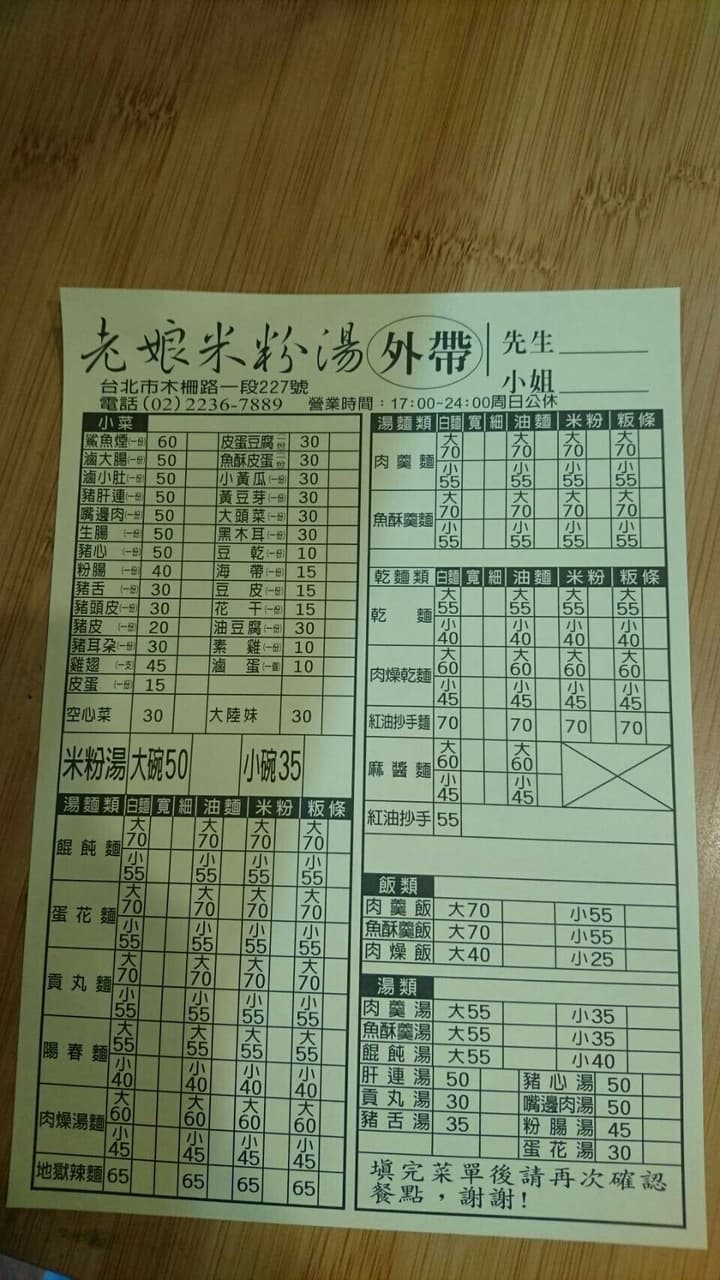 老娘米粉湯 外帶 先生
小姐
台北市木柵路一段227號
電話(02)2236-7889 營業時間：17:00~24:00周日公休
小菜
鯊魚煙(一份) 60 皮蛋豆腐(一份) 30
滷大腸(一份) 50 魚酥皮蛋(一份) 30
滷小肚(一份) 50 小黃瓜(一份) 30
豬肝連(一份) 50 黃豆芽(一份) 30
嘴邊肉(一份) 50 大頭菜(一份) 30
生腸(一份) 50 黑木耳(一份) 30
豬心(一份) 50 豆乾(一份) 10
粉腸(一份) 40 海帶(一份) 15
豬舌(一份) 30 豆皮(一份) 15
豬頭皮(一份) 30 花干(一份) 15
豬皮(一份) 20 油豆腐(一份) 30
豬耳朵(一份) 30 素雞(一份) 10
雞翅(一支) 45 滷蛋(一個) 10
皮蛋(一份) 15
空心菜 30 大陸妹 30
米粉湯 大碗50 小碗35
湯麵類 白麵 寬 細 油麵 米粉 粄條
餛飩麵 大70 大70 大70 大70
小55 小55 小55 小55
蛋花麵 大70 大70 大70 大70
小55 小55 小55 小55
貢丸麵 大70 大70 大70 大70
小55 小55 小55 小55
陽春麵 大55 大55 大55 大55
小40 小40 小40 小40
肉燥湯麵 大60 大60 大60 大60
小45 小45 小45 小45
地獄辣麵 65 65 65 65
湯麵類 白麵 寬 細 油麵 米粉 粄條
肉羹麵 大70 大70 大70 大70
小55 小55 小55 小55
魚酥羹麵 大70 大70 大70 大70
小55 小55 小55 小55
乾麵類 白麵 寬 細 油麵 米粉 粄條
乾麵 大55 大55 大55 大55
小40 小40 小40 小40
肉燥乾麵 大60 大60 大60 大60
小45 小45 小45 小45
紅油抄手麵 70 70 70 70
麻醬麵 大60 大60
小45 小45
紅油抄手 55
飯類
肉羹飯 大70 小55
魚酥羹飯 大70 小55
肉燥飯 大40 小25
湯類
肉羹湯 大55 小35
魚酥羹湯 大55 小35
餛飩湯 大55 小40
肝連湯 50 豬心湯 50
貢丸湯 30 嘴邊肉湯 50
豬舌湯 35 粉腸湯 45
蛋花湯 30
填完菜單後請再次確認
餐點，謝謝！